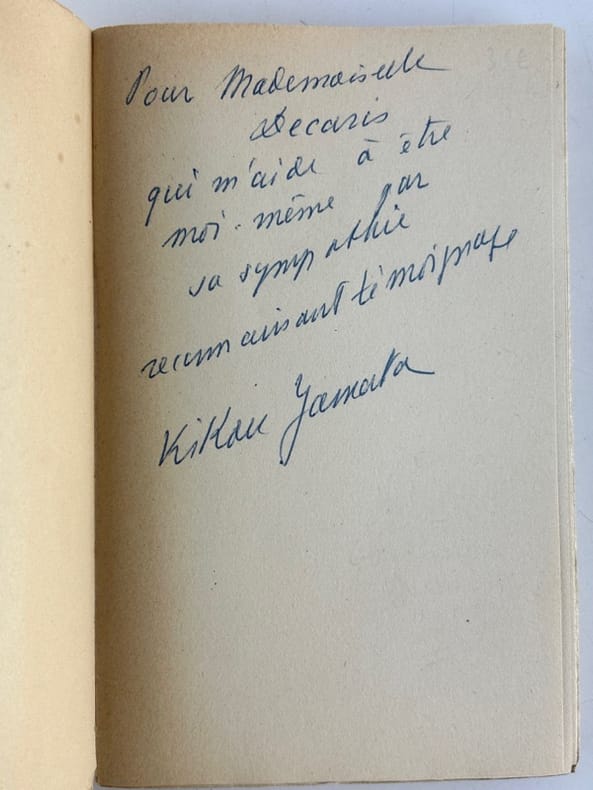 Pour Mademoiselle
Decaris
qui m'aide à être
moi-même par
sa sympathie
reconnaissant témoignage
Kikou Yamata
35€